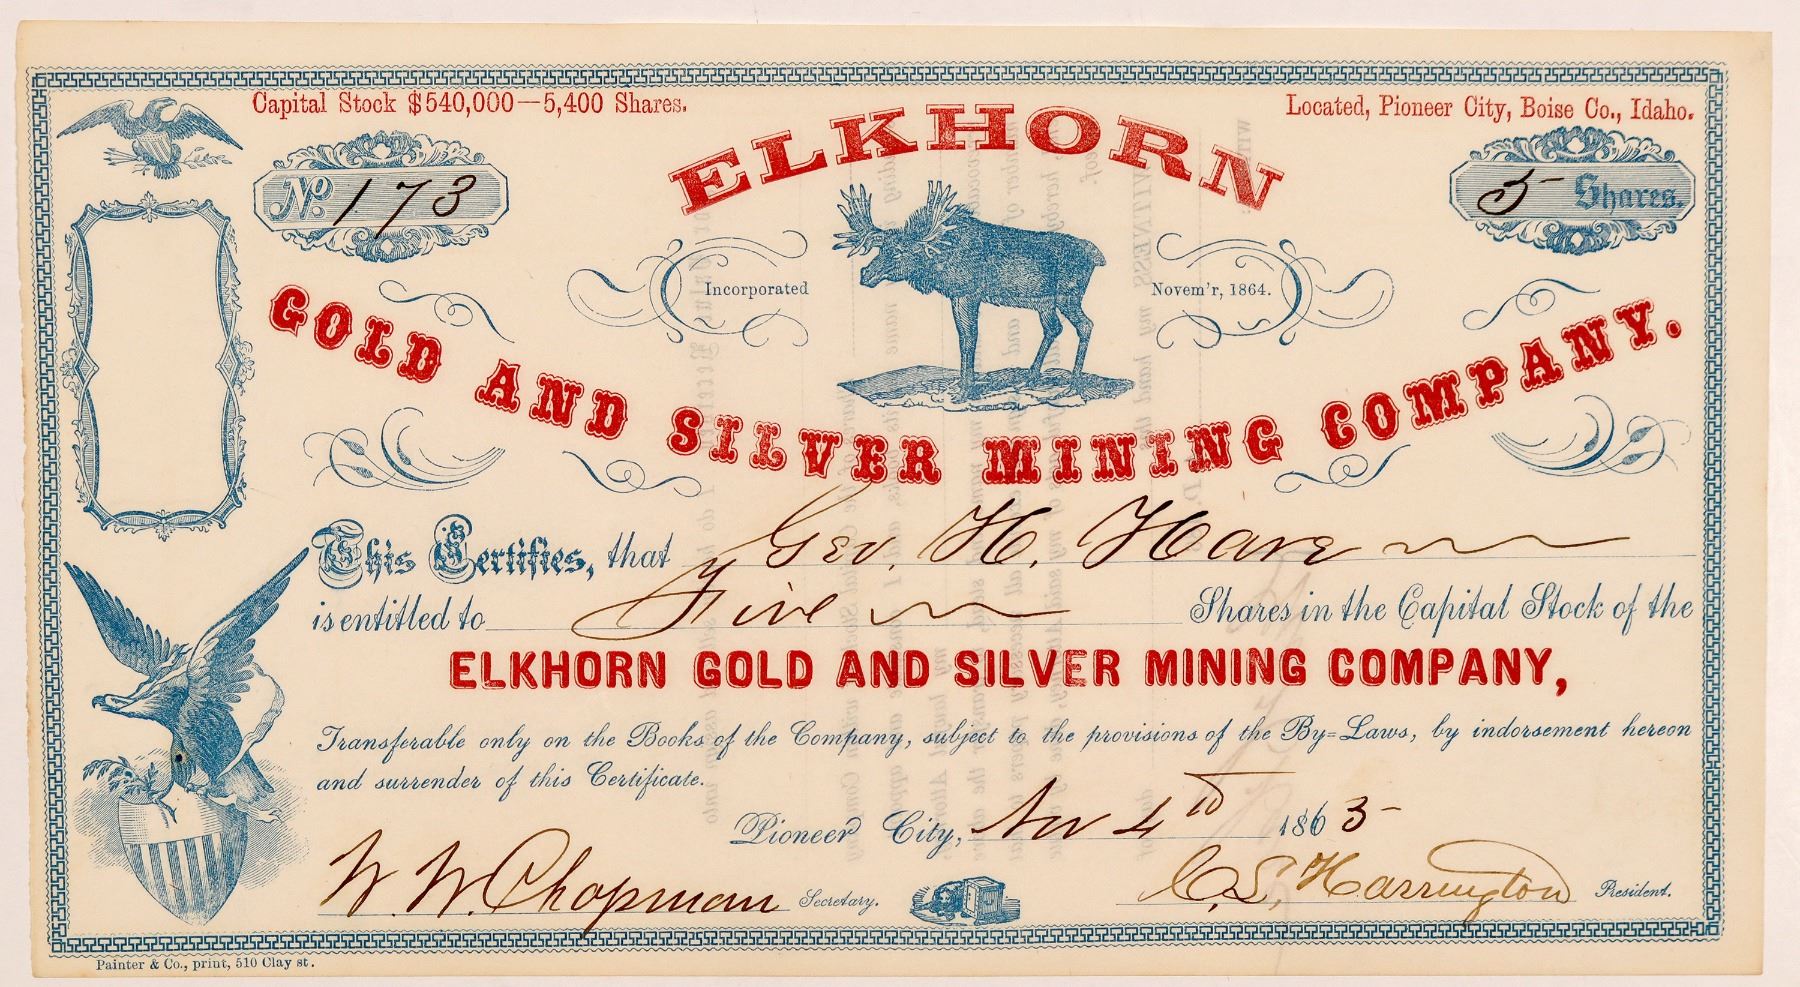 Capital Stock $540,000—5,400 Shares.
Located, Pioneer City, Boise Co., Idaho.
ELKHORN
No. 173
5 Shares.
Incorporated
Novem'r, 1864.
GOLD AND SILVER MINING COMPANY.
This Certifies, that Geo. H. Hare
is entitled to Five Shares in the Capital Stock of the
ELKHORN GOLD AND SILVER MINING COMPANY,
Transferable only on the Books of the Company, subject to the provisions of the By=Laws, by indorsement hereon
and surrender of this Certificate.
Pioneer City, Nov 4th 1865
W. W. Chapman Secretary.
C. S. Harrington President.
Painter & Co., print, 510 Clay st.